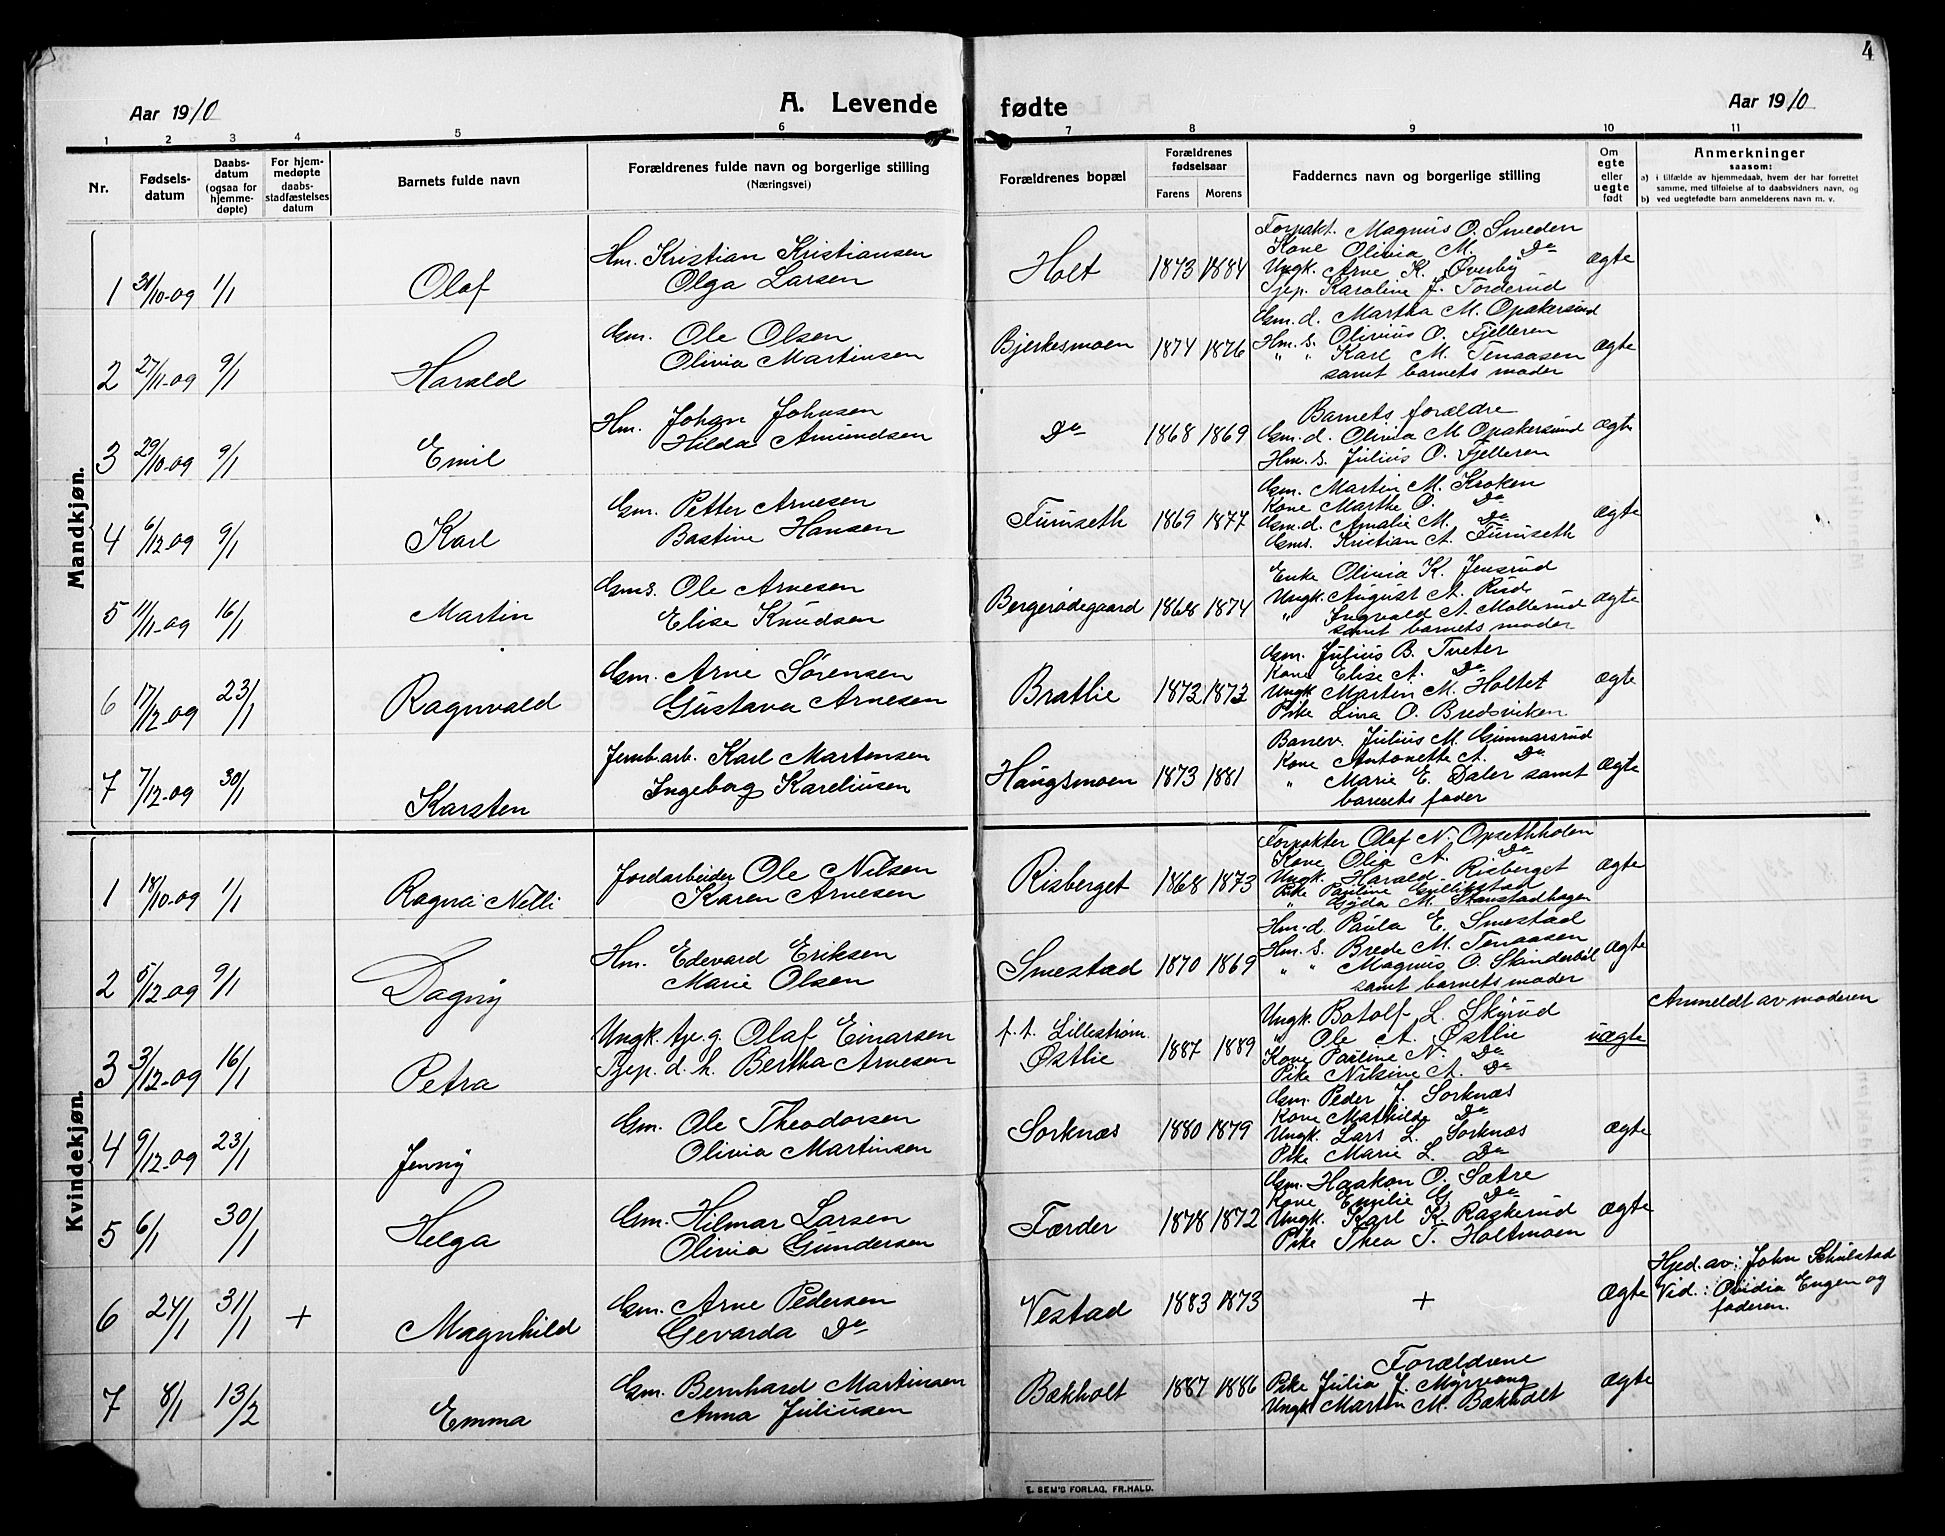 4
Aar 1910
A. Levende
fødte
Aar 1910
1 2 3 4 5 6 7 8 9 10 11
Nr.
Fødsels-
datum
Daabs-
datum
(ogsaa for
hjemme-
døpte)
For hjem-
medøpte
daabs-
stadfæstelses
datum
Barnets fulde navn
Forældrenes fulde navn og borgerlige stilling
(Næringsvei)
Forældrenes bopæl
Forældrenes
fødselsaar
Farens Morens
Faddernes navn og borgerlige stilling
Om
egte
eller
uegte
født
Anmerkninger
saasom:
a) i tilfælde av hjemmedaab, hvem der har forrettet
samme, med tilføielse af to daabsvidners navn, og
b) ved uegtefødte barn anmelderens navn m. v.
Mandkjøn.
1 31/10-09 1/1 Olaf
Hm. Kristian Kristiansen
Olga Larsen
Holt 1873 1884
Forpakt. Magnus O. Smeden
Kone Olivia M. Do
Ungk. Arne K. Øverby
Tjep. Karoline J. Torderud
ægte
2 27/11-09 9/1 Harald
Gm. Ole Olsen
Olivia Martinsen
Bjerkesmoen 1874 1876
Gm.d. Martha M. Opakersund
Hm.s. Olivius O. Fjelleren
" " Karl M. Tenaasen
samt barnets moder
ægte
3 29/10-09 9/1 Emil
Hm. Johan Johnsen
Hilda Amundsen
Do 1868 1869
Barnets forældre
Gm.d. Olivia M Opakersund
Hm.s. Julius O. Fjelleren
ægte
4 6/12-09 9/1 Karl
Gm. Petter Arnesen
Bastine Hansen
Furuseth 1869 1877
Gm. Martin M. Kroken
Kone Marthe O. Do
Gm.d. Amalie M. Do
Gms. Kristian A. Furuseth
ægte
5 11/11-09 16/1 Martin
Gms. Ole Arnesen
Elise Knudsen
Bergerødegaard 1868 1874
Enke Olivia K. Jensrud
Ungk. August A. Rud
" Ingvald A. Mollerud
samt barnets moder
ægte
6 17/12-09 23/1 Ragnvald
Gm. Arne Sørensen
Gustava Arnesen
Bratlie 1873 1873
Gm. Julius B. Tveter
Kone Elise A. Do
Ungk. Martin M. Holtet
Pike Lina O. Bredsviken
ægte
7 7/12-09 30/1 Karsten
Jernb.arb. Karl Martensen
Ingeborg Kareliusen
Haugsmoen 1873 1881
Banev. Julius M. Gunnarsrud
Kone Antonette A. Do
" Marie E. Daler samt
barnets fader
ægte
Kvindekjøn.
1 18/10-09 1/1 Ragna Nelli
Jordarbeider Ole Nilsen
Karen Arnesen
Risberget 1868 1873
Forpakter Olaf N. Opsethholen
Kone Olia A. Do
Ungk. Harald Risberget
Pike Pauline Gullikstad
" Gyda M. Skanstadhagen
ægte
2 5/12-09 9/1 Dagny
Hm. Edevard Eriksen
Marie Olsen
Smestad 1870 1869
Hm.d. Paula E. Smestad
Hm.s. Brede M. Tenaasen
" " Magnus O. Skinderbøl
samt barnets moder
ægte
3 3/12-09 16/1 Petra
Ungk. tje. g. Olaf Einarsen
Tjep. d. h. Bertha Arnesen
f. t. Lillestrøm.
Østlie
1887 1889
Ungk. Botolf L. Skyrud
" Ole A. Østlie
Kone Pauline N. Do
Pike Nilsine A. Do
uægte
Anmeldt av moderen
4 9/12-09 23/1 Jenny
Gm. Ole Theodorsen
Olivia Martinsen
Sorknæs 1880 1879
Gm. Peder J. Sorknæs
Kone Mathilde Do
Ungk. Lars L. Sorknæs
Pike Marie L. Do
ægte
5 6/1 30/1 Helga
Gm. Hilmar Larsen
Olivia Gundersen
Færder 1878 1872
Gm. Haakon O. Sætre
Kone Emilie G. Do
Ungk. Karl K. Raskerud
Pike Thea T. Holtmoen
ægte
6 24/1 31/1 + Magnhild
Gm. Arne Pedersen
Gevarda Do
Vestad 1883 1873
+
ægte
Hjed. av: John Schulstad
Vid.: Ovidia Engen og
faderen.
7 8/1 13/2 Emma
Gm. Bernhard Martinsen
Anna Juliusen
Bækholt 1887 1886
Forældrene
Pike Julia J. Myrvang
Ungk. Martin M. Bækholt
ægte
E. SEM'S FORLAG, FR.HALD.